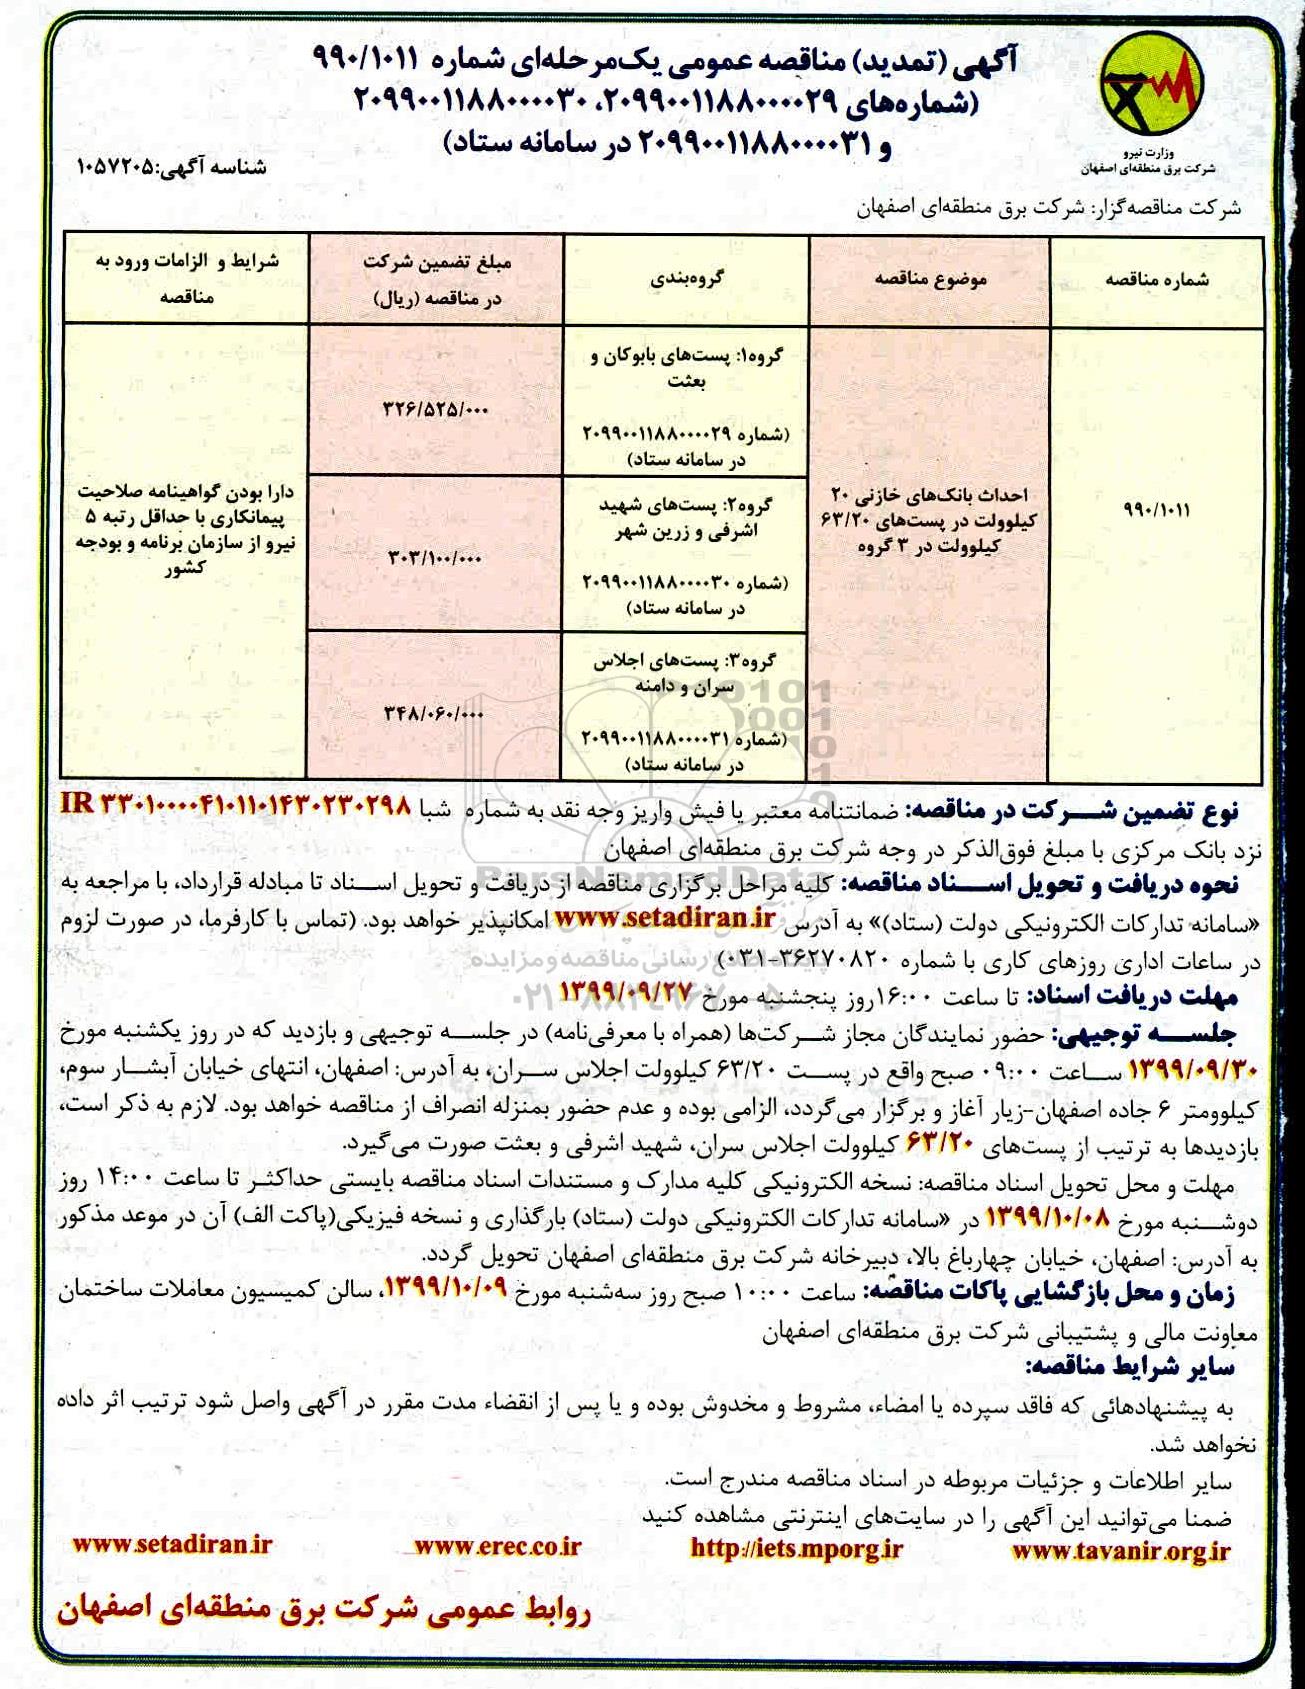 آگهی (تمدید) مناقصه عمومی یک‌مرحله‌ای شماره ۹۹۰/۱۰۱۱
(شماره‌های ۲۰۹۹۰۰۱۱۸۸۰۰۰۰۲۹، ۲۰۹۹۰۰۱۱۸۸۰۰۰۰۳۰
و ۲۰۹۹۰۰۱۱۸۸۰۰۰۰۳۱ در سامانه ستاد)
وزارت نیرو
شرکت برق منطقه‌ای اصفهان
شناسه آگهی:۱۰۵۷۲۰۵
شرکت مناقصه‌گزار: شرکت برق منطقه‌ای اصفهان
شماره مناقصه
موضوع مناقصه
گروه‌بندی
مبلغ تضمین شرکت
در مناقصه (ریال)
شرایط و الزامات ورود به
مناقصه
۹۹۰/۱۰۱۱
احداث بانک‌های خازنی ۲۰
کیلوولت در پست‌های ۶۳/۲۰
کیلوولت در ۳ گروه
گروه۱: پست‌های بابوکان و
بعثت
(شماره ۲۰۹۹۰۰۱۱۸۸۰۰۰۰۲۹
در سامانه ستاد)
۳۲۶/۵۲۵/۰۰۰
گروه۲: پست‌های شهید
اشرفی و زرین شهر
(شماره ۲۰۹۹۰۰۱۱۸۸۰۰۰۰۳۰
در سامانه ستاد)
۳۰۳/۱۰۰/۰۰۰
گروه۳: پست‌های اجلاس
سران و دامنه
(شماره ۲۰۹۹۰۰۱۱۸۸۰۰۰۰۳۱
در سامانه ستاد)
۳۴۸/۰۶۰/۰۰۰
دارا بودن گواهینامه صلاحیت
پیمانکاری با حداقل رتبه ۵
نیرو از سازمان برنامه و بودجه
کشور
نوع تضمین شـــرکت در مناقصه: ضمانتنامه معتبر یا فیش واریز وجه نقد به شماره شبا IR ۳۳۰۱۰۰۰۰۴۱۰۱۱۰۱۴۳۰۲۳۰۲۹۸
نزد بانک مرکزی با مبلغ فوق‌الذکر در وجه شرکت برق منطقه‌ای اصفهان
نحوه دریافت و تحویل اســـناد مناقصه: کلیه مراحل برگزاری مناقصه از دریافت و تحویل اســـناد تا مبادله قرارداد، با مراجعه به
«سامانه تدارکات الکترونیکی دولت (ستاد)» به آدرس www.setadiran.ir امکانپذیر خواهد بود. (تماس با کارفرما، در صورت لزوم
در ساعات اداری روزهای کاری با شماره ۳۶۲۷۰۸۲۰-۰۳۱)
مهلت دریافت اسناد: تا ساعت ۱۶:۰۰روز پنجشنبه مورخ ۱۳۹۹/۰۹/۲۷
جلســـه توجیهی: حضور نمایندگان مجاز شـــرکت‌ها (همراه با معرفی‌نامه) در جلســـه توجیهی و بازدید که در روز یکشنبه مورخ
۱۳۹۹/۰۹/۳۰ ســـاعت ۰۹:۰۰ صبح واقع در پســـت ۶۳/۲۰ کیلوولت اجلاس ســـران، به آدرس: اصفهان، انتهای خیابان آبشـــار سوم،
کیلوومتر ۶ جاده اصفهان-زیار آغاز و برگزار می‌گردد، الزامی بوده و عدم حضور بمنزله انصراف از مناقصه خواهد بود. لازم به ذکر است،
بازدیدها به ترتیب از پست‌های ۶۳/۲۰ کیلوولت اجلاس سران، شهید اشرفی و بعثت صورت می‌گیرد.
مهلت و محل تحویل اسناد مناقصه: نسخه الکترونیکی کلیه مدارک و مستندات اسناد مناقصه بایستی حداکثـر تا ساعت ۱۴:۰۰ روز
دوشـــنبه مورخ ۱۳۹۹/۱۰/۰۸ در «سامانه تدارکات الکترونیکی دولت (ستاد) بارگذاری و نسخه فیزیکی(پاکت الف) آن در موعد مذکور
به آدرس: اصفهان، خیابان چهارباغ بالا، دبیرخانه شرکت برق منطقه‌ای اصفهان تحویل گردد.
زمان و محل بازگشایی پاکات مناقصه: ساعت ۱۰:۰۰ صبح روز سه‌شنبه مورخ ۱۳۹۹/۱۰/۰۹، سالن کمیسیون معاملات ساختمان
معاونت مالی و پشتیبانی شرکت برق منطقه‌ای اصفهان
سایر شرایط مناقصه:
به پیشنهادهائی که فاقد سپرده یا امضاء، مشروط و مخدوش بوده و یا پس از انقضاء مدت مقرر در آگهی واصل شود ترتیب اثر داده
نخواهد شد.
سایر اطلاعات و جزئیات مربوطه در اسناد مناقصه مندرج است.
ضمنا می‌توانید این آگهی را در سایت‌های اینترنتی مشاهده کنید
www.tavanir.org.ir http://iets.mporg.ir www.erec.co.ir www.setadiran.ir
روابط عمومی شرکت برق منطقه‌ای اصفهان
ParsNamadData
پایگاه اطلاع رسانی مناقصه و مزایده